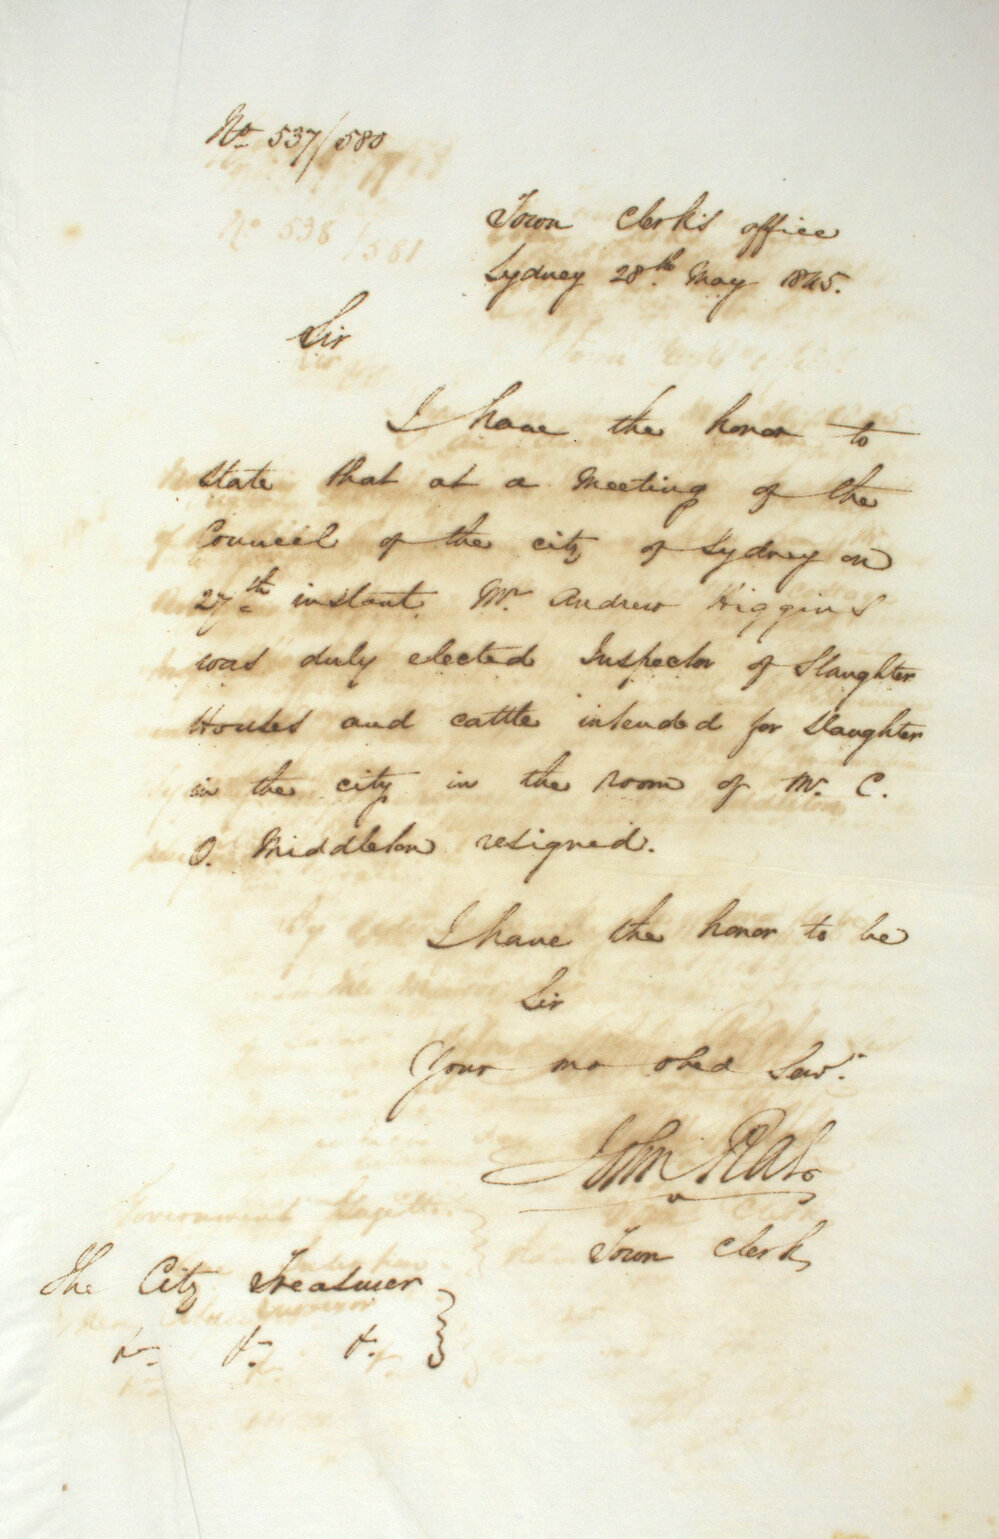 No 537/580
Town Clerk's office
Sydney 28th May 1845.
Sir
I have the honor to
state that at a Meeting of the
Council of the city of Sydney on
27th instant Mr Andrew Higgins
was duly elected Inspector of Slaughter
Houses and cattle intended for slaughter
in the city in the room of Mr. C.
O. Middleton resigned.
I have the honor to be
Sir
Your mo obed Servt.
John Rae
Town Clerk
The City Treasurer
No 538/581